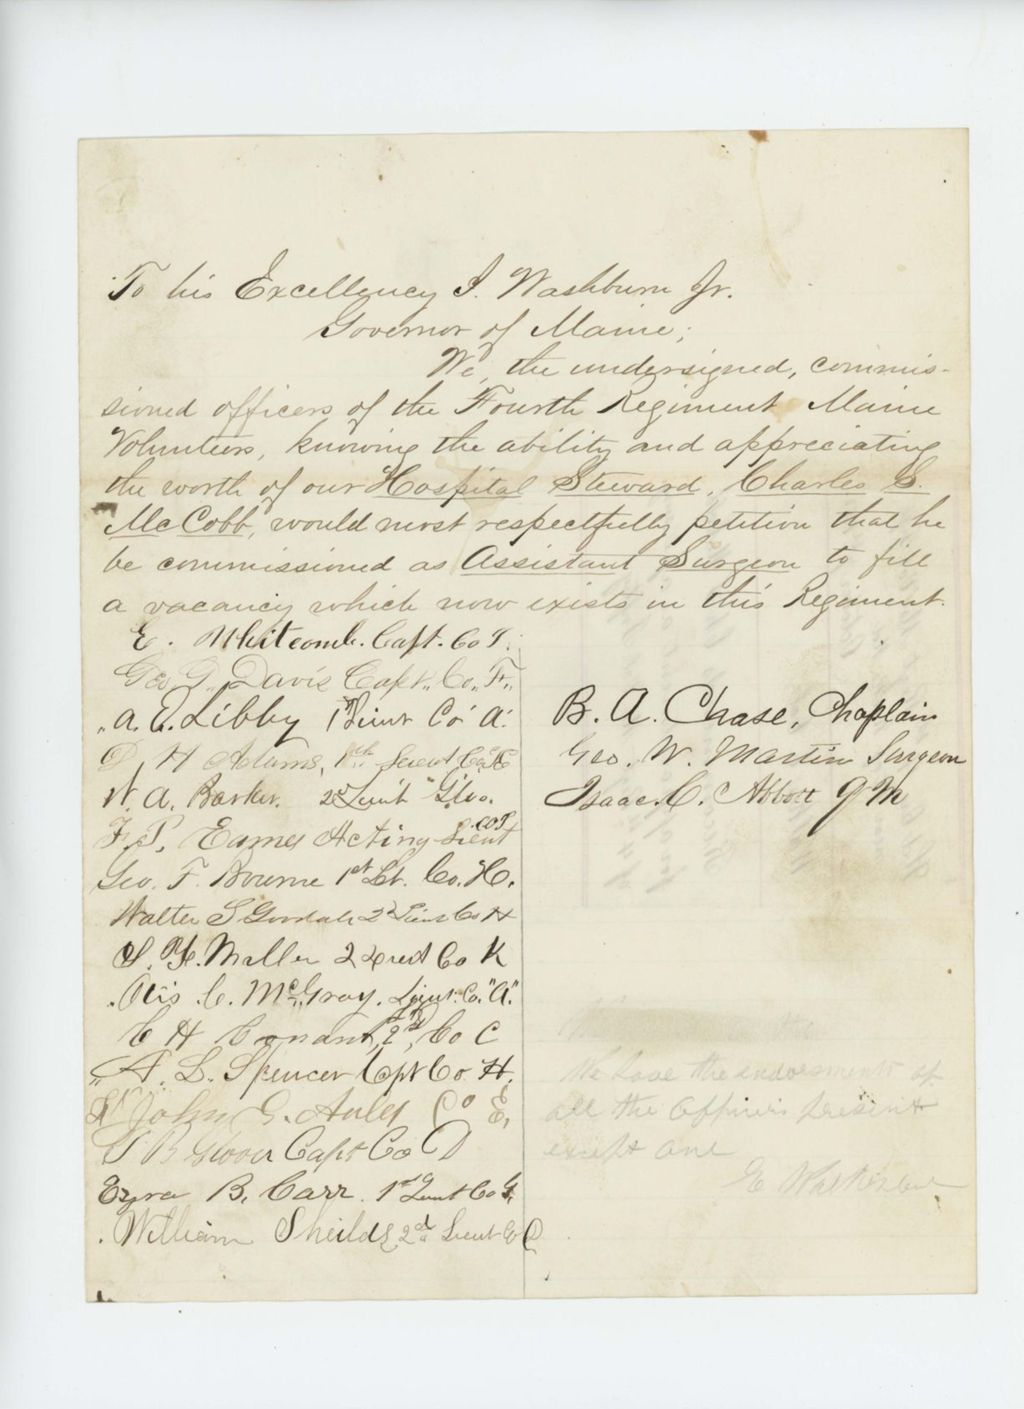 To his Excellency I. Washburn Jr.
Governor of Maine;
We, the undersigned, commis-
sioned officers of the Fourth Regiment Maine
Volunteers, knowing the ability and appreciating
the worth of our Hospital Steward, Charles S.
McCobb, would most respectfully petition that he
be commissioned as Assistant Surgeon to fill
a vacancy which now exists in this Regiment.
E. Whitcomb. Capt. Co I.
Geo G. Davis Capt. Co. F.
A. E. Libby 1st Lieut Co A.
D. H Adams, Lieut Co
W. A. Barker. 2d Lieut
F. S. Eames Acting Lieut
Geo. F. Bourne 1st Lt. Co. H.
Walter S Goodale 2d Lieut Co H
Waller 2 Lieut Co K
Otis C. McGray. Lieut. Co. "A."
C H Conant, 2d, Co C
A. L. Spencer Capt Co. H.
Lt John G. Auld Co E,
Glover Capt Co D
Ezra B. Carr. 1st Lieut Co
William Sheilds 2d Lieut Co
B. A. Chase, Chaplain
Geo. W. Martin Surgeon
Isaac C. Abbott Q M
We have the endorsments of
all the Officers present
except one
E Whitcomb